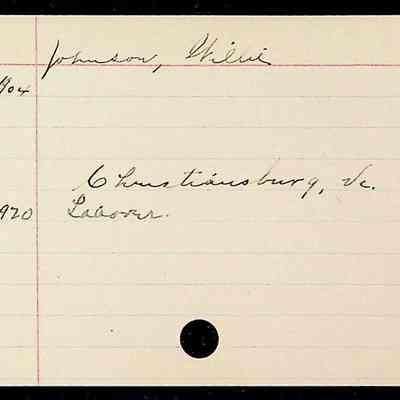 Johnson, Willie
904
Christiansburg, Va.
920 Laborer.